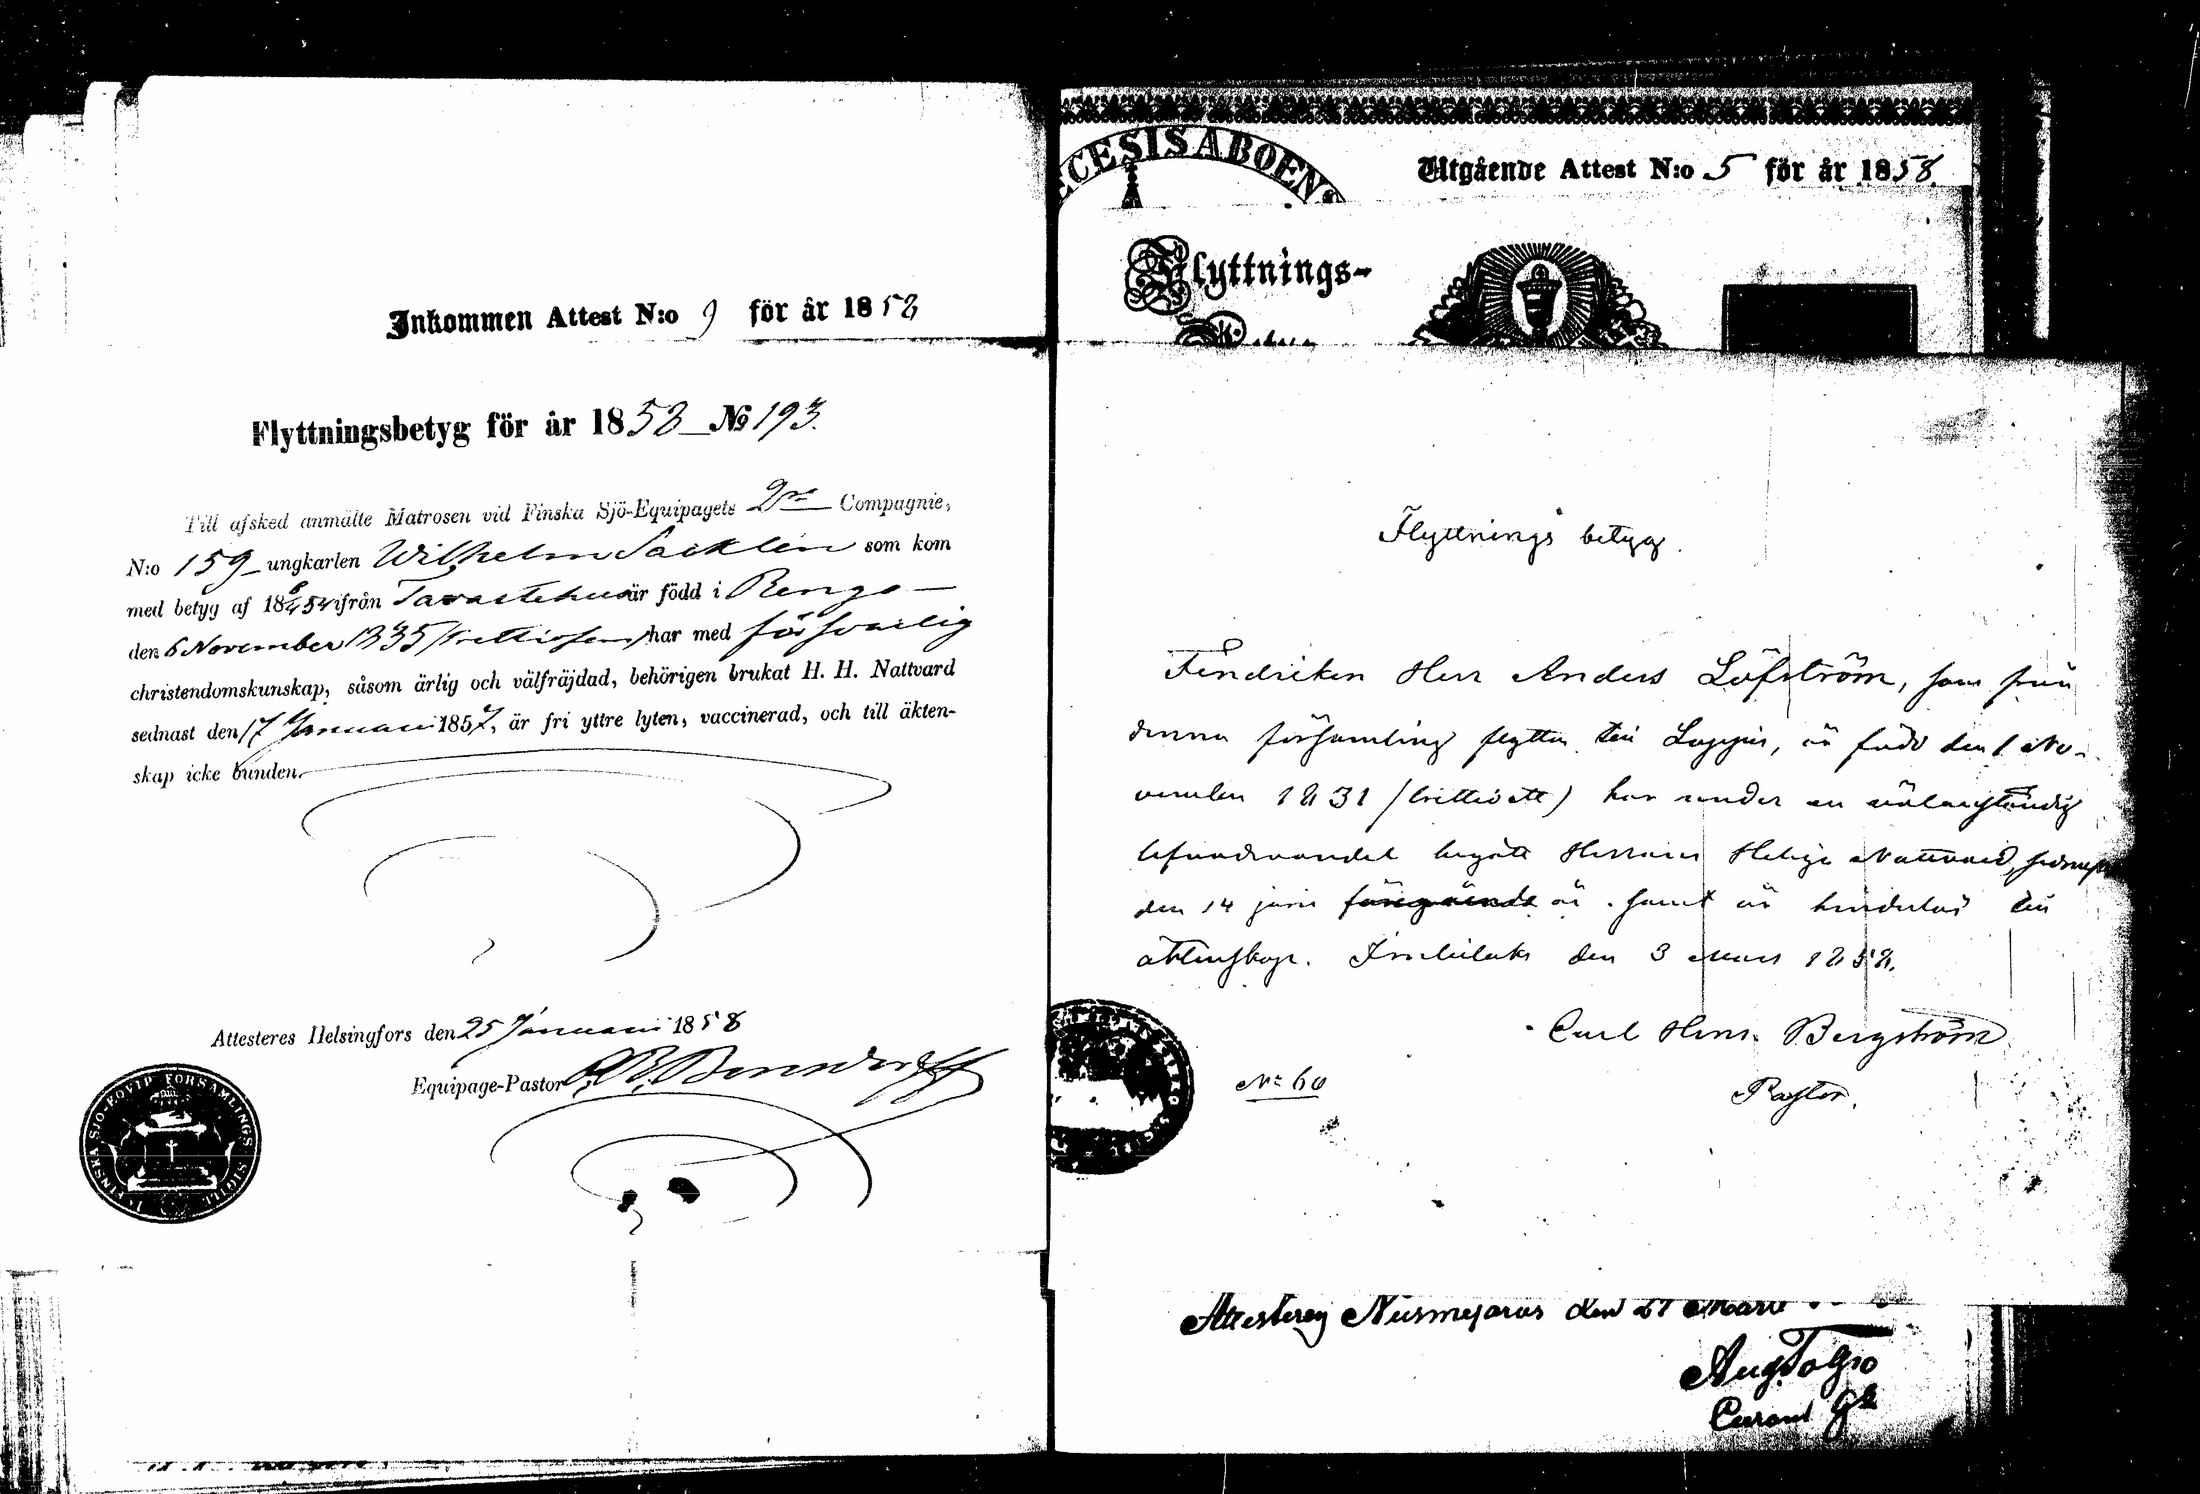 Inkommen Attest N:o 9 för år 1858
Flyttningsbetyg för år 1858 № 193.
Till afsked anmälte Matrosen vid Finska Sjö-Equipagets 2ra Compagnie,
N:o 159 ungkarlen Wilhelm Sacklin som kom
med betyg af 18 54 ifrån Tavastehus är född i Rengo
den 6 November 1835 /trettiofem/ har med försvarlig
christendomskunskap, såsom ärlig och välfräjdad, behörigen brukat H. H. Nattvard
sednast den 17 Januari 1857, är fri yttre lyten, vaccinerad, och till äkten-
skap icke bunden.
Attesteres Helsingfors den 25 Januari 1858
Equipage-Pastor
FINSKA SJÖ-EQVIP. FÖRSAMLINGS SIGILL
CESIS ABOENS
Utgående Attest N:o 5 för år 1858.
Flyttnings-
Flyttnings betyg.
Fendriken Herr Anders Löfström, som från
denna församling flyttar till Loppis, är född den 1 No-
vember 1831 /trettioett) har under en välanständig
lefnadsvandel begått Herrans Heliga Nattvard, sednast
den 14 juni föregående år samt är hinderlös till
äktenskap. Imbilaks den 3 Mars 1858.
Carl Henr. Bergström
Pastor.
№ 60
Attesterey Nusmejaros den 27 Mars
Aug.